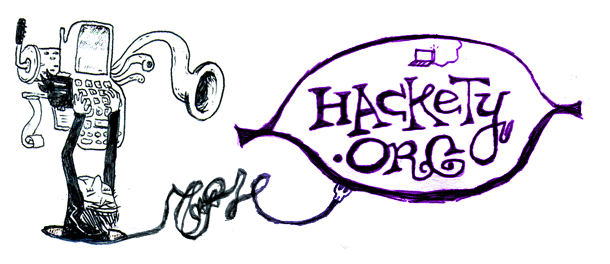 HACKETY
.ORG